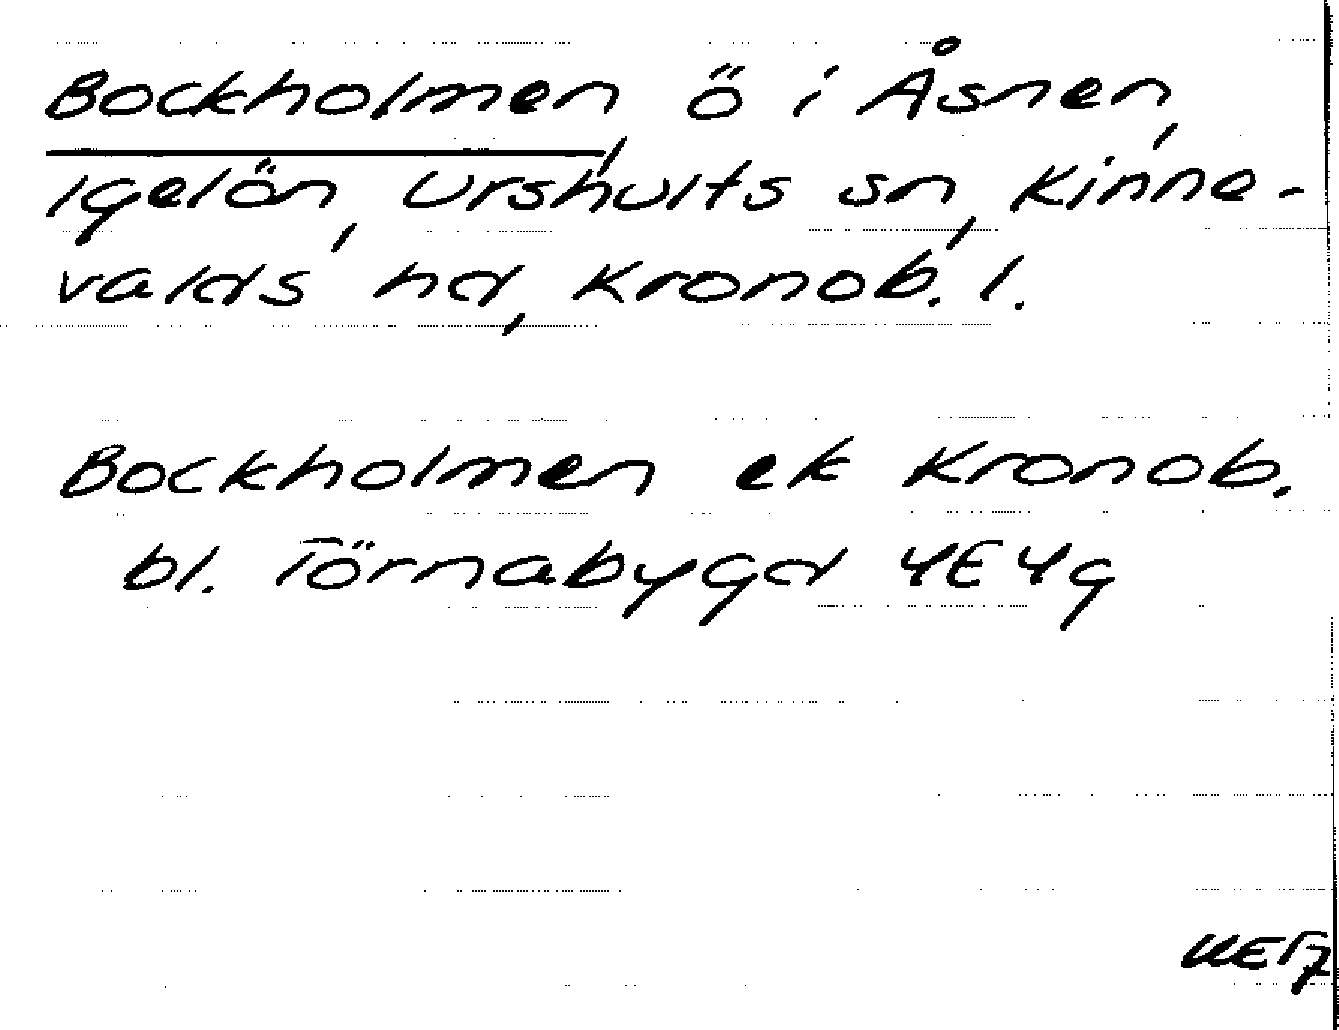 Bockholmen, ö i Åsnen,
Igelön, Urshults sn, Kinne-
valds hd, Kronob. l.
Bockholmen ek Kronob.
bl. Törnabygd 4E4g